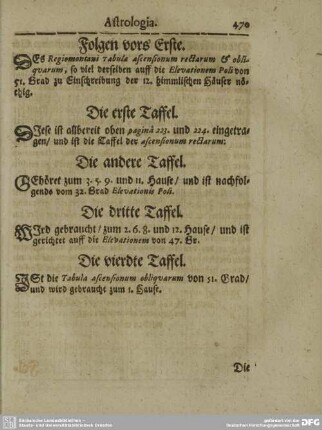 Astrologia. 470
Folgen vors Erste.
DEs Regiomontani Tabulæ ascensionum rectarum & obli-
qvarum, so viel derselben auff die Elevationem Poli von
51. Grad zu Einschreibung der 12. himmlischen Häuser nö-
thig.
Die erste Taffel.
DIese ist allbereit oben paginâ 223. und 224. eingetra-
gen/ und ist die Taffel der ascensionum rectarum:
Die andere Taffel.
GEhöret zum 3. 5. 9. und 11. Hause/ und ist nachfol-
gends vom 32. Grad Elevationis Poli.
Die dritte Taffel.
WIrd gebraucht/ zum 2. 6. 8. und 12. Hause/ und ist
gerichtet auff die Elevationem von 47. Gr.
Die vierdte Taffel.
ISt die Tabula ascensionum obliqvarum von 51. Grad/
und wird gebraucht zum 1. Hause.
Die